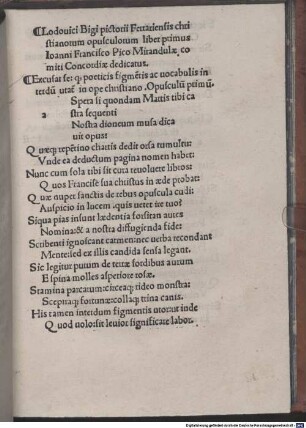 ¶Lodouici Bigi pictorii Ferrariensis chri
stianorum opusculorum liber primus
Ioanni Francisco Pico Mirandulæ co
miti Concordiæ dedicatus.
¶Excusat se: q poeticis figmētis ac vocabulis in
terdū utat in ope christiano. Opusculū primū.
Spera si quondam Martis tibi ca
a
stra sequenti
Nostra dioneum musa dica
uit opus:
Quæq; repētino chartis dedit orsa tumultu:
Vnde ea deductum pagina nomen habet:
Nunc cum sola tibi sit cura reuoluere libros:
Quos Francisce sua christus in æde probat:
Quæ nuper sanctis de rebus opuscula cudi:
Auspicio in lucem quis uetet ire tuo?
Siqua pias insunt lædentia fositan aures
Nomina: & a nostra diffugienda fide:
Scribenti ignoscant carmen: nec uerba recondant
Mente: sed ex illis candida sensa legant.
Sic legitur purum de terræ sordibus aurum
E spina molles asperiore rosæ.
Stamina parcarum: circeaq; rideo monstra:
Sceptraq; fortunæ: collaq; trina canis.
His tamen interdum figmentis utor: at inde
Quod uolo: sit leuior significare labor.